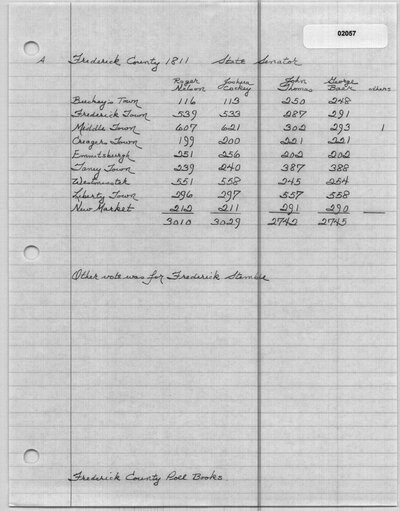 02057
A Frederick County 1811 State Senator
Roger Nelson Joshua Cockey John Thomas George Baer others
Buckey's Town 116 113 250 248
Frederick Town 539 533 287 291
Middle Town 607 621 302 293 1
Creager's Town 199 200 221 221
Emmitsburgh 251 256 202 202
Taney Town 239 240 387 388
Westminster 551 558 245 254
Liberty Town 296 297 557 558
New Market 212 211 291 290
3010 3029 2742 2745
Other vote was for Frederick Stemble
Frederick County Poll Books